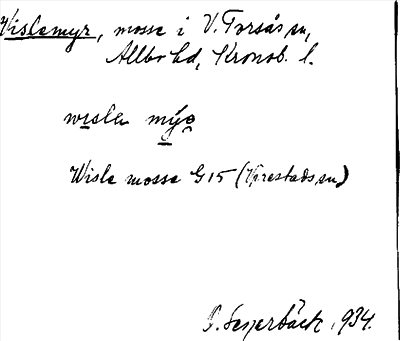 Vislemyr, mosse i V. Torsås sn,
Allbo hd, Kronob. l.
wisla
Wisle mosse G15 (Virestads sn)
1934.